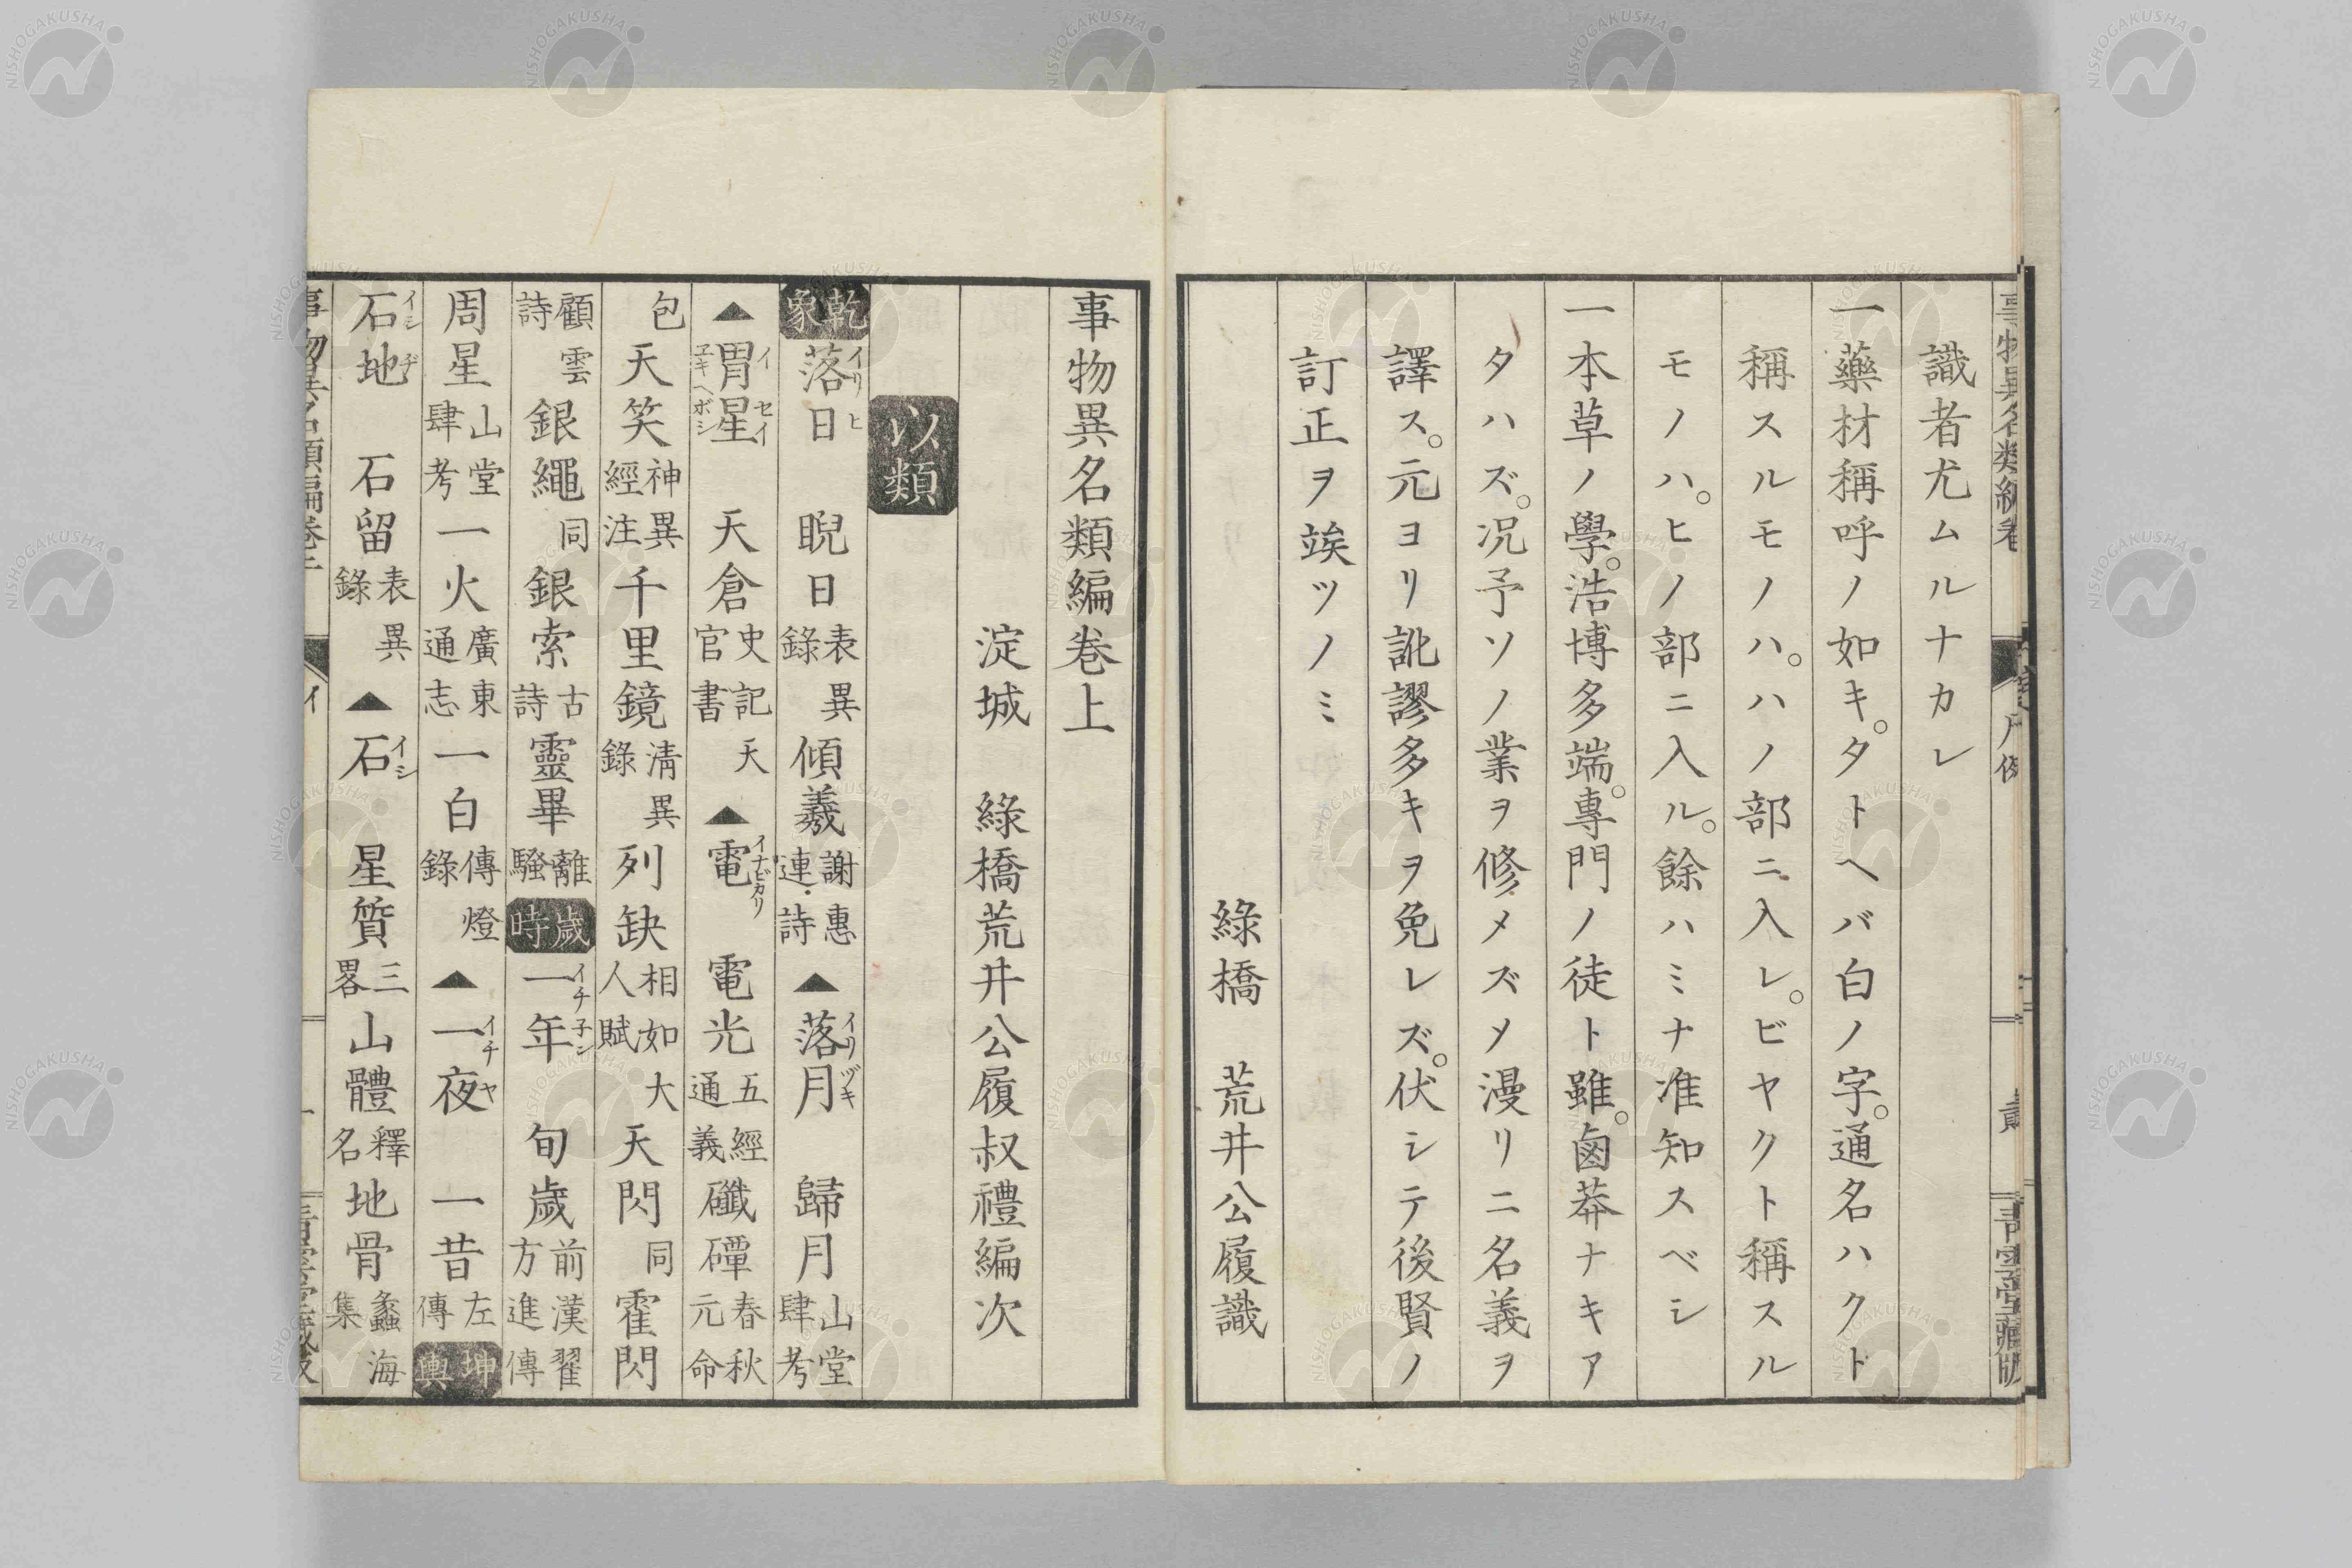 識者尤ムルナカレ
一藥材稱呼ノ如キ。タトヘバ白ノ字。通名ハクト
稱スルモノハ。ハノ部ニ入レ。ビヤクト稱スル
モノハ。ヒノ部ニ入ル。餘ハミナ准知スベシ
一本草ノ學。浩博多端。專門ノ徒ト雖。鹵莽ナキア
タハズ。况予ソノ業ヲ修メズメ漫リニ名義ヲ
譯ス。元ヨリ訛謬多キヲ免レズ。伏シテ後賢ノ
訂正ヲ竢ツノミ
綠橋 荒井公履識
事物異名類編卷上
淀城 綠橋荒井公履叔禮編次
以類
乾象 落日イリヒ 睨日表異錄 傾羲謝惠連詩 ▲落月イリヅキ 歸月山堂肆考
▲胃星イセイ 子キヘボシ 天倉史記天官書 ▲電イナビカリ 電光五經通義 礮磹春秋元命
包 天笑神異經注 千里鏡清異錄 列缺相如大人賦 天閃同 霍閃
顧雲詩 銀繩同 銀索古詩 靈畢離騷 歲時 一年イチ子ン 旬歲前漢翟方進傳
周星山堂肆考 一火廣東通志 一白傳燈錄 ▲一夜イチヤ 一昔左傳 坤輿
石地イシヂ 石留表異錄 ▲石イシ 星質三畧 山體釋名 地骨蠡海集